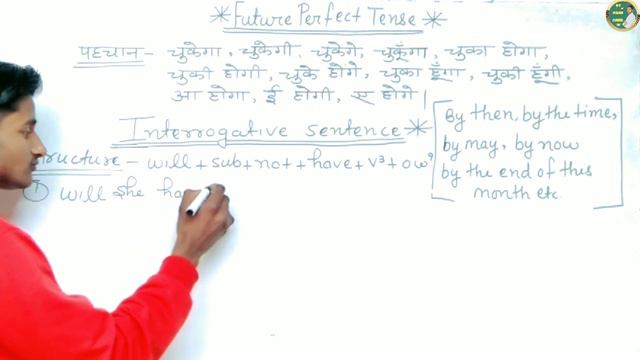 *Future Perfect Tense*
पहचान - चुकेगा, चुकेगी, चुकेगे, चुकूँगा, चुका होगा,
चुकी होगी, चुके होगे, चुका हूँगा, चुकी हूँगी,
आ होगा, ई होगी, ए होगे।
Interrogative sentence*
Structure - will + sub + not + have + v³ + ow?
① will she ha
By then, by the time,
by may, by now
by the end of this
month etc.